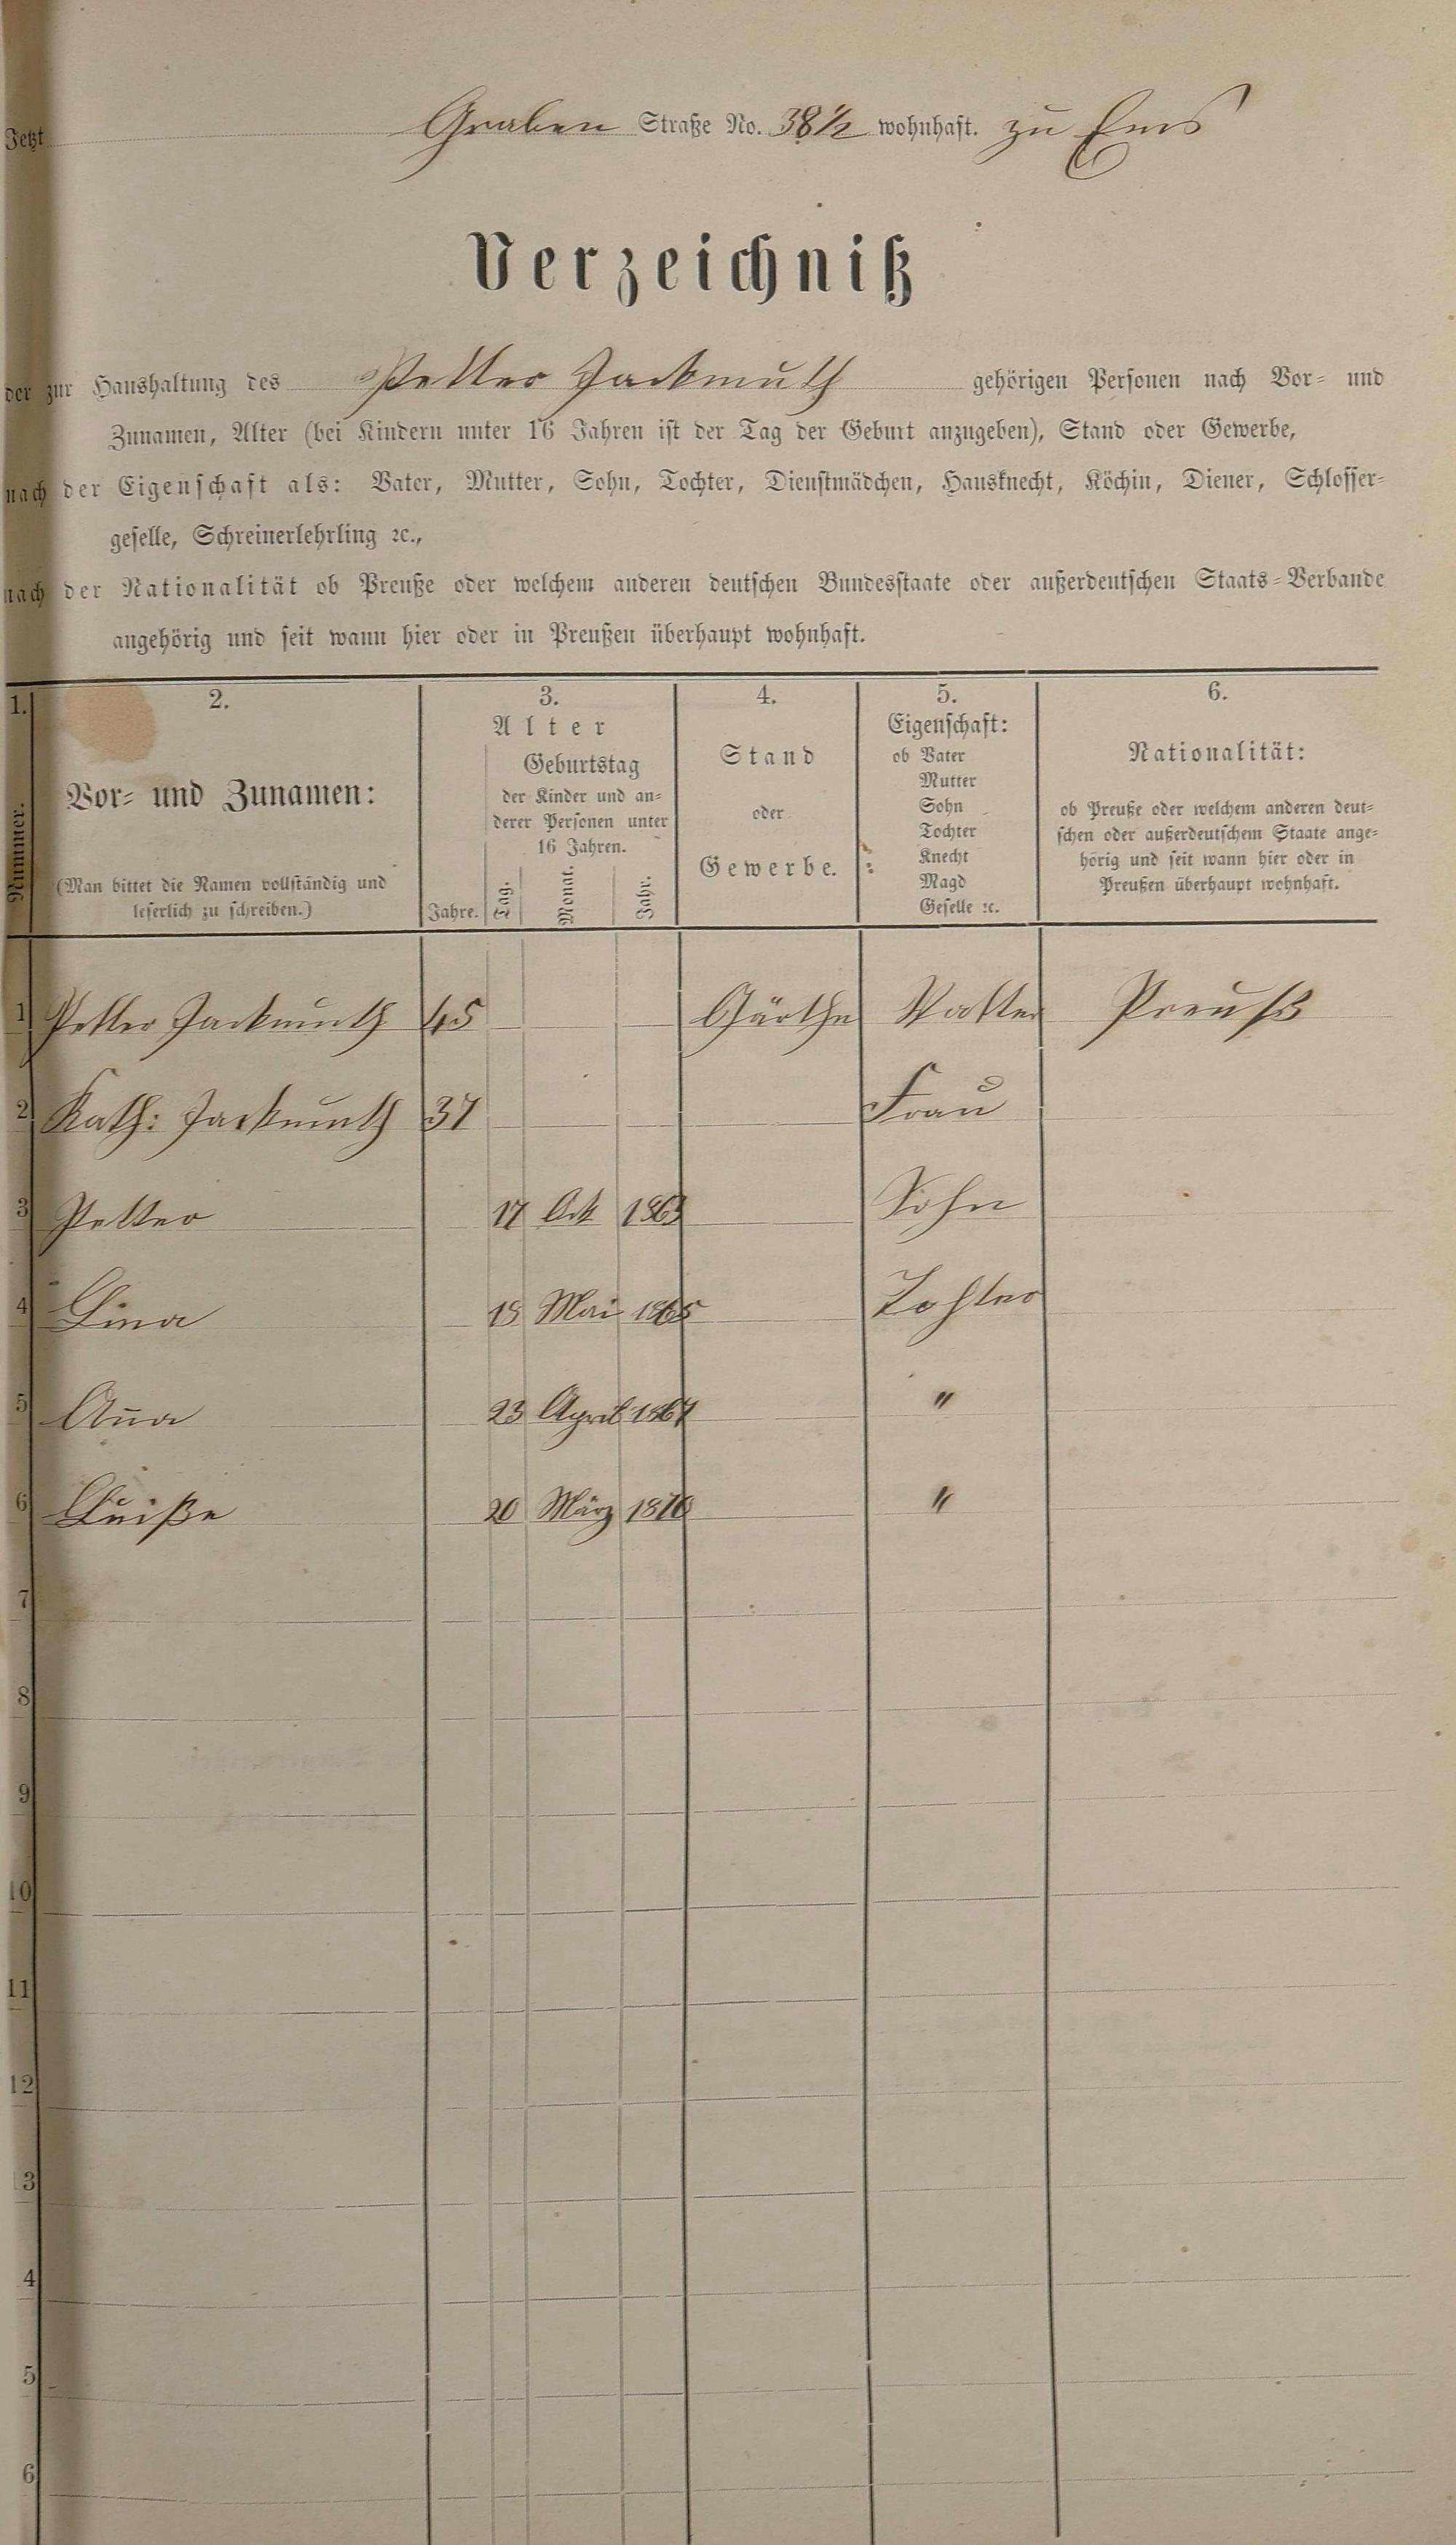 Jetzt Graben Straße No. 38 1/2 wohnhaft. zu Ems
Verzeichniß
der zur Haushaltung des Petter Jackmuth gehörigen Personen nach Vor- und
Zunamen, Alter (bei Kindern unter 16 Jahren ist der Tag der Geburt anzugeben), Stand oder Gewerbe,
nach der Eigenschaft als: Vater, Mutter, Sohn, Tochter, Dienstmädchen, Hausknecht, Köchin, Diener, Schlosser-
geselle, Schreinerlehrling ꝛc.,
nach der Nationalität ob Preuße oder welchem anderen deutschen Bundesstaate oder außerdeutschen Staats-Verbande
angehörig und seit wann hier oder in Preußen überhaupt wohnhaft.
1.
Nummer.
2.
Vor- und Zunamen:
(Man bittet die Namen vollständig und
leserlich zu schreiben.)
3.
Alter
Jahre.
Geburtstag
der Kinder und an-
derer Personen unter
16 Jahren.
Tag.
Monat.
Jahr.
4.
Stand
oder
Gewerbe.
5.
Eigenschaft:
ob Vater
Mutter
Sohn
Tochter
Knecht
Magd
Geselle ꝛc.
6.
Nationalität:
ob Preuße oder welchem anderen deut-
schen oder außerdeutschem Staate ange-
hörig und seit wann hier oder in
Preußen überhaupt wohnhaft.
1 Petter Jackmuth 45 Gärthe Vatter Preuß
2 Kath: Jackmuth 37 Frau
3 Petter 17 Ock 1863 Sohn
4 Lina 18 Mai 1865 Tohter
5 Aña 23 April 1867 "
6 Luiße 20 März 1870 "
7
8
9
10
11
12
13
4
5
6